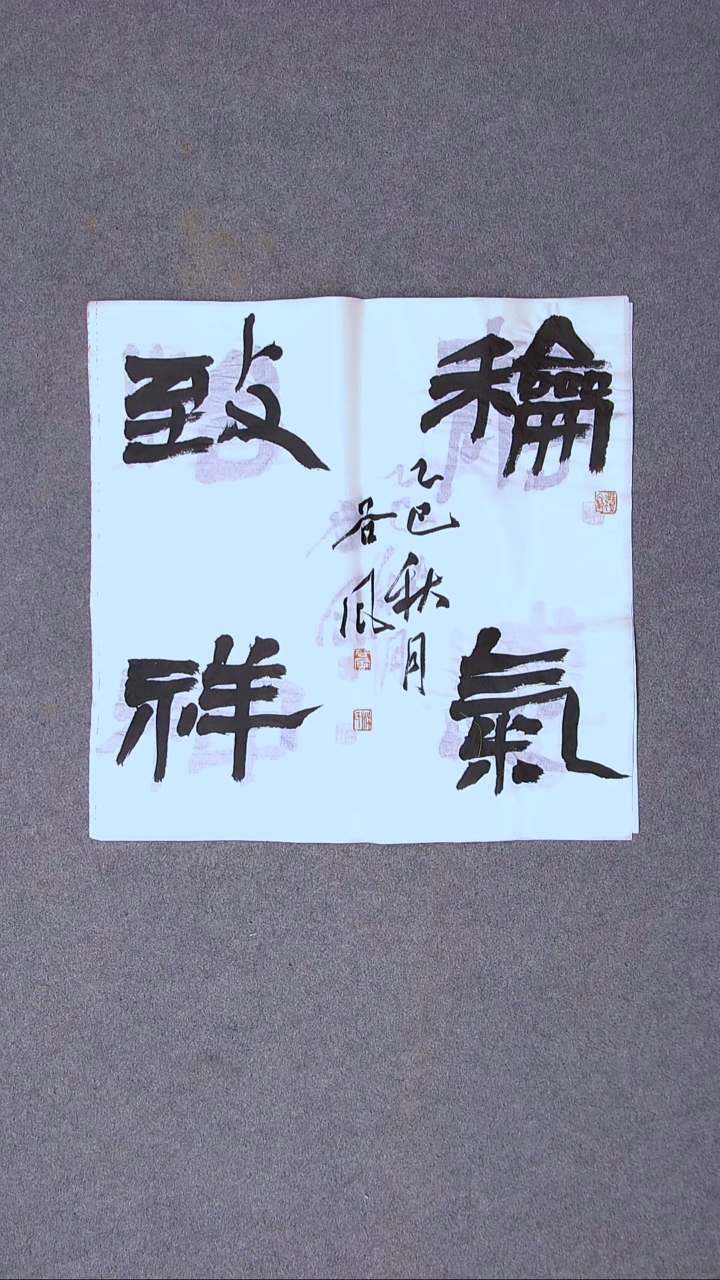 龢氣
致祥
乙巳秋月
谷風